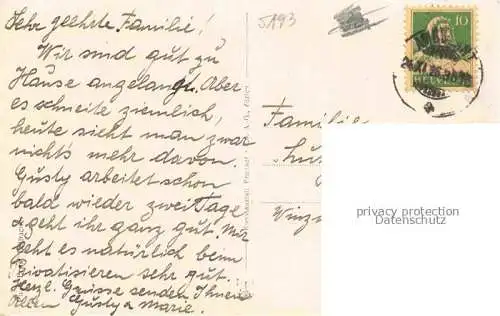 Sehr geehrte Familie!
Wir sind gut zu
Hause angelangt. Aber
es schneite ziemlich,
heute sieht man zwar
nichts mehr davon.
Gusty arbeitet schon
bald wieder zwei Tage
& geht ihr ganz gut. Mir
geht es natürlich beim
privatisieren sehr gut.
Herzl. Grüsse senden Ihnen
Allen Gusty & Marie.
5193
10
HELVETIA
Familie
privacy protection
Datenschutz